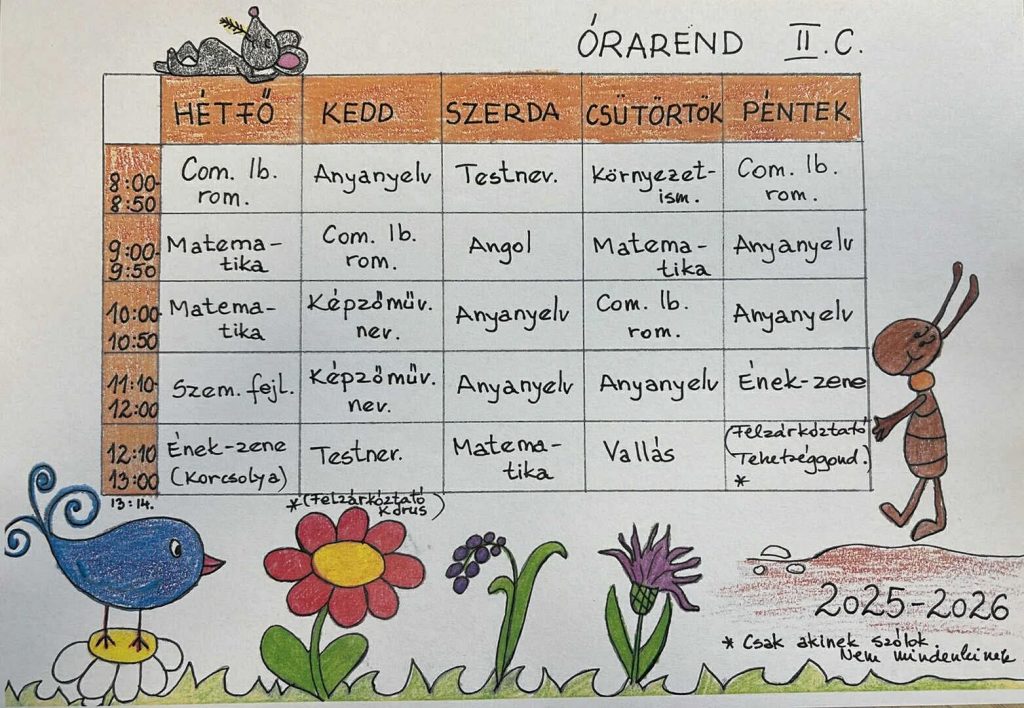 ÓRAREND II.C.
HÉTFŐ KEDD SZERDA CSÜTÖRTÖK PÉNTEK
8:00-
8:50
Com. lb.
rom.
Anyanyelv
Testnev.
Környezet-
ism.
Com. lb.
rom.
9:00-
9:50
Matema-
tika
Com. lb.
rom.
Angol
Matema-
tika
Anyanyelv
10:00-
10:50
Matema-
tika
Képzőműv.
nev.
Anyanyelv
Com. lb.
rom.
Anyanyelv
11:10-
12:00
Szem. fejl.
Képzőműv.
nev.
Anyanyelv
Anyanyelv
Ének-zene
12:10
13:00
Ének-zene
(Korcsolya)
Testnev.
Matema-
tika
Vallás
(Felzárkóztató
Tehetséggond.)
*
13:14.
*(Felzárkóztató
Kórus)
2025-2026
* Csak akinek szólok
Nem mindenkinek